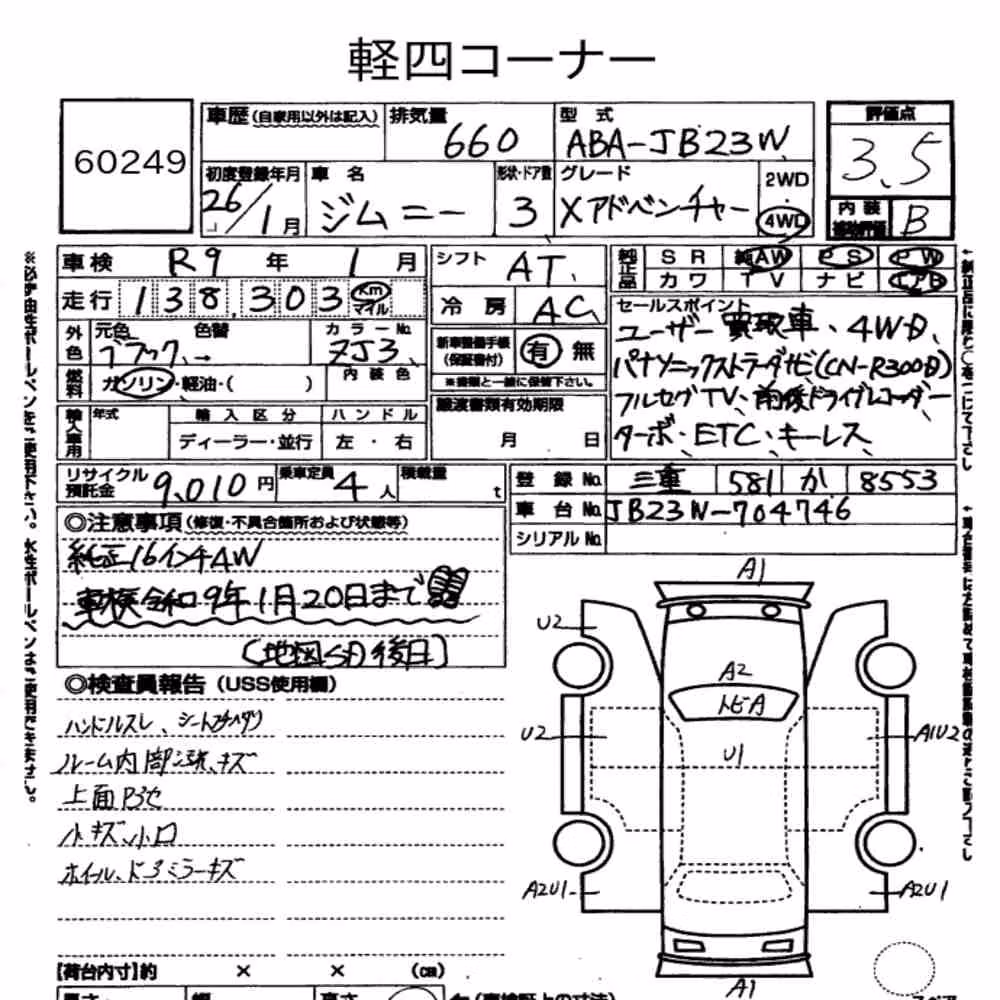 軽四コーナー
60249
車歴(自家用以外は記入) 排気量 660 型式 ABA-JB23W
評価点 3.5
初度登録年月 26/1月 車名 ジムニー 形状・ドア数 3 グレード Xアドベンチャー 2WD・4WD
内装 B
車検 R9年 1月 シフト AT
走行 138,303 Km マイル 冷房 AC
純正品 SR 純AW PS PW
カワ TV ナビ エアB
外色 元色 ブラック 色替 → カラーNo. ZJ3
新車整備手帳(保証書付) 有 無
※書類と一緒に保管下さい。
燃料 ガソリン・軽油・( ) 内装色
セールスポイント
ユーザー買取車、4WD、
パナソニックストラーダナビ(CN-R300D)
フルセグTV、前後ドライブレコーダー
ターボ・ETC・キーレス
輸入車用 年式 輸入区分 ディーラー・並行 ハンドル 左・右
譲渡書類有効期限 月 日
リサイクル預託金 9,010円 乗車定員 4人 積載量 t
登録No. 三重 581 か 8553
車台No. JB23W-704746
シリアルNo.
◎注意事項(修復・不具合箇所および状態等)
純正16インチAW
車検令和9年1月20日まで
(地図SD後日)
◎検査員報告(USS使用欄)
ハンドルスレ、シート
ルーム内部汚れ、キズ
上面ボセ
小キズ、小凹
ホイール、ドアミラーキズ
A1
U2
A2
トビA
U2
A1U2
U1
A2U1
A2U1
A1
【荷台内寸】約 × × (cm)
長さ 幅 高さ
※必ず油性ボールペンをご使用下さい。水性ボールペンはご使用できません。